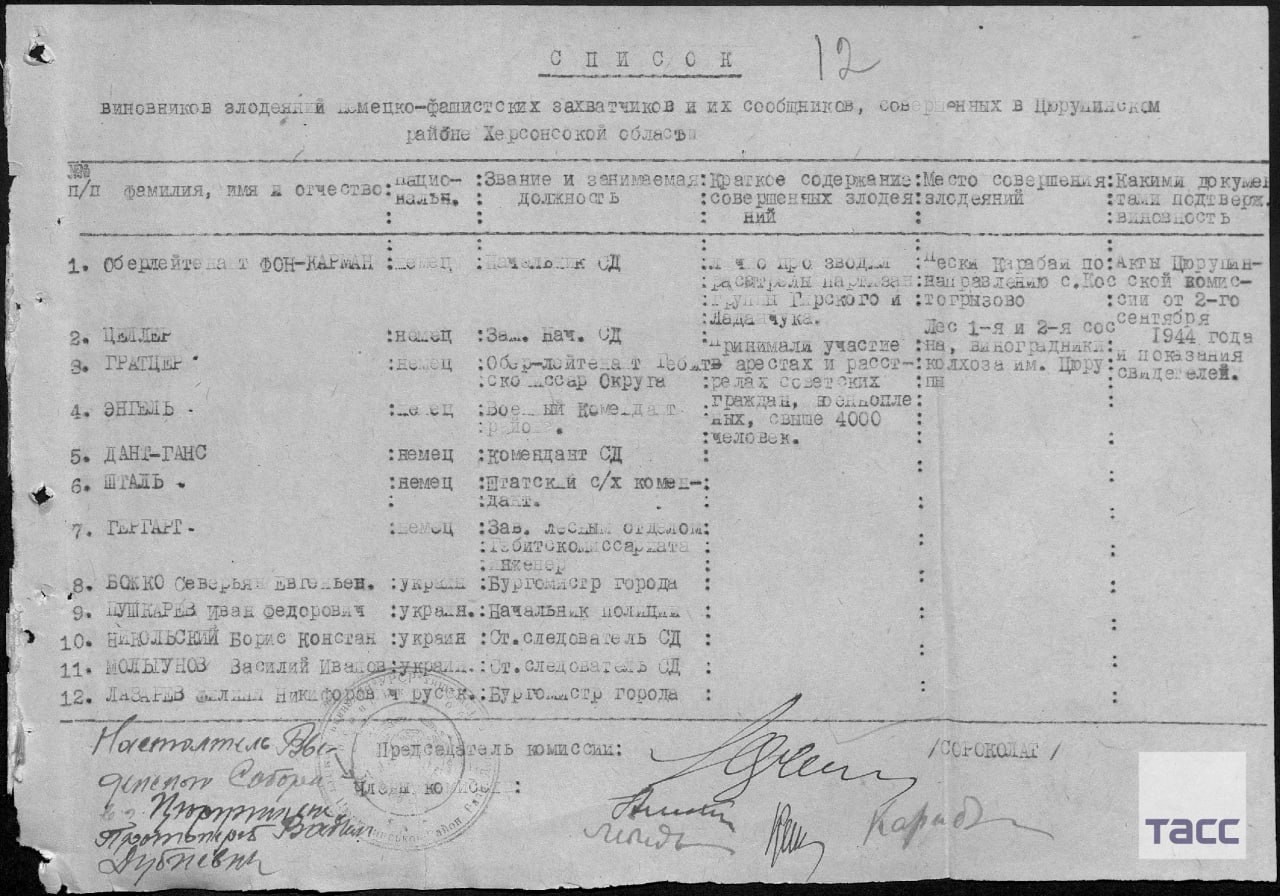 12
СПИСОК
виновников злодеяний немецко-фашистских захватчиков и их сообщников, совершенных в Цюрупинском
районе Херсонсокой области
№№ п/п
фамилия, имя и отчество
нацио-
нальн.
Звание и занимаемая
должность
Краткое содержание
совершенных злодея
ний
Место совершения
злодеяний
Какими докумен
тами подтверж.
виновность
1. Оберлейтенант ФОН-КАРМАН : немец : Начальник СД
2. ЦЕЛЛЕР : немец : Зам. нач. СД
3. ГРАТЦЕР : немец : Обер-лейтенант Гебит
скомиссар Округа
4. ЭНГЕЛЬ : немец : Военный Комендант
района.
5. ДАНТ-ГАНС : немец : комендант СД
6. ШТАЛЬ : немец : Штатский с/х комен-
дант.
7. ГЕРГАРТ : немец : Зав. лесным отделом
Гебитскомиссариата
инженер
8. БОЖКО Северьян Евгеньен. : украин : Бургомистр города
9. ПУШКАРЕВ Иван Федорович : украин. : Начальник полиции
10. НИКОЛЬСКИЙ Борис Констан : украин : Ст.следователь СД
11. МОЛЫГУНОВ Василий Иванов : украин. : Ст.следователь СД
12. ЛАЗАРЕВ Никифорович : русск. : Бургомистр города
Лично производил
расстрелы партизан
группы Гирского и
Ладанчука.
Принимали участие
в арестах и расст-
релах советских
граждан, военнопле
ных, свыше 4000
человек.
Пески Карабай по
направлению с.Кос
тогрызово
Лес 1-я и 2-я сос
на, виноградники
колхоза им. Цюру
пы
Акты Цюрупин-
ской комис-
сии от 2-го
сентября
1944 года
и показания
свидетелей.
Председатель комиссии: /СОРОКОЛАТ/
Члены комиссии:
Настоятель Вве-
денского Собора
Протоиерей
ТАСС